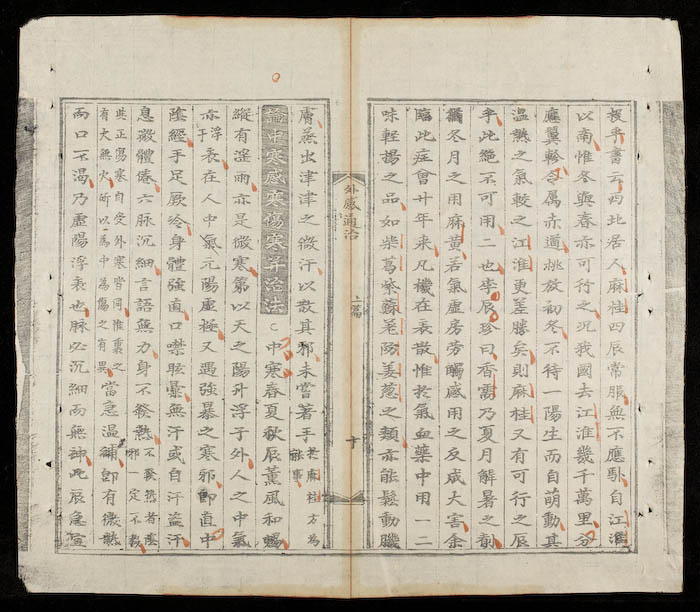 按乎書云西北居人麻桂四辰常服無不應馭自江淮
以南惟冬與春亦可行之况我國去江淮幾千萬里分
應翼軫令属赤道桃放初冬不待一陽生而自萌動其
温熱之氣較之江淮更差勝矣則麻桂又有可行之辰
乎此絕不可用二也李辰珍曰香需乃夏月解暑之劑
猶冬月之用麻黄若氣虛房劳觸感用之反成大害余
臨此症會廿年来凡機在表散惟於氣血藥中用一二
味輕揚之品如柴葛紫蘇羌防姜葱之類亦能鬆動腠
外感通治
上篇
十
膚蒸出津津之微汗以散其邪未嘗著手於麻桂方為能事
論中寒感寒傷寒并治法 中寒春夏秋辰薰風和暢
縱有淫雨亦是微寒第以天之陽升浮于外人之中氣
亦浮于表在人中氣元陽虛極又遇強暴之寒邪即直中
陰經手足厥冷身體強直口噤眩暈無汗或自汗盗汗
息微體倦六脉沉細言語無力身不發熱不發熱者陰邪一定不移
此正傷寒自受外寒皆同惟裏之有火無火所以為中為傷之有異當急温補即有微熱
而口不渴乃虛陽浮表也脉必沉細而無神此辰急宜